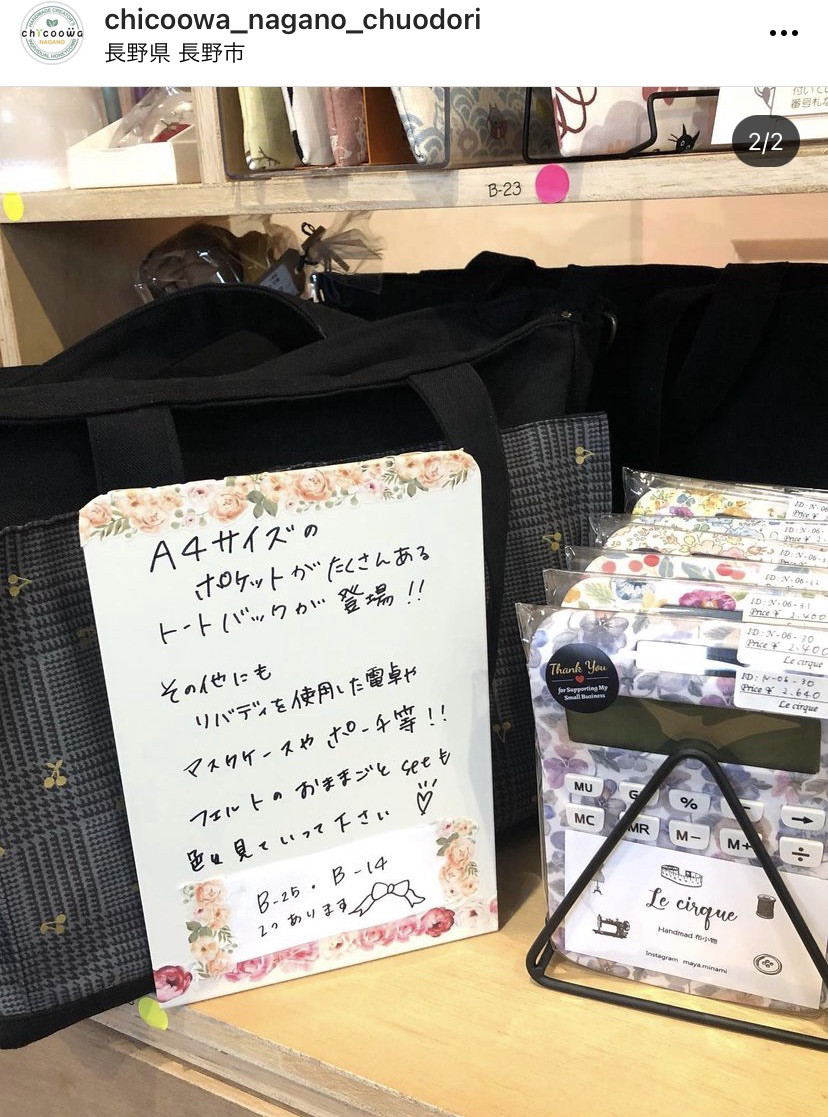 chicoowa_nagano_chuodori
長野県 長野市
HANDMADE CREATOR'S
chicoowa
NAGANO
INDIVIDUAL HONEYCOMB
2/2
番号札
B-23
A4サイズの
ポケットがたくさんある
トートバックが登場!!
その他にも
リバティを使用した電卓や
マスクケースやポーチ等!!
フェルトのおままごとsetも
是非見ていって下さい
B-25・B-14
2つあります
Thank You
for Supporting My
Small Business
ID:N-06-31
Price ¥ 2.400
ID:N-06-30
Price ¥ 2.400
Le cirque
ID:N-06-30
Price ¥ 2.640
Le cirque
MU
%
MC
MR
M−
M+
÷
Le cirque
Handmad 布小物
Instagram maya.minami